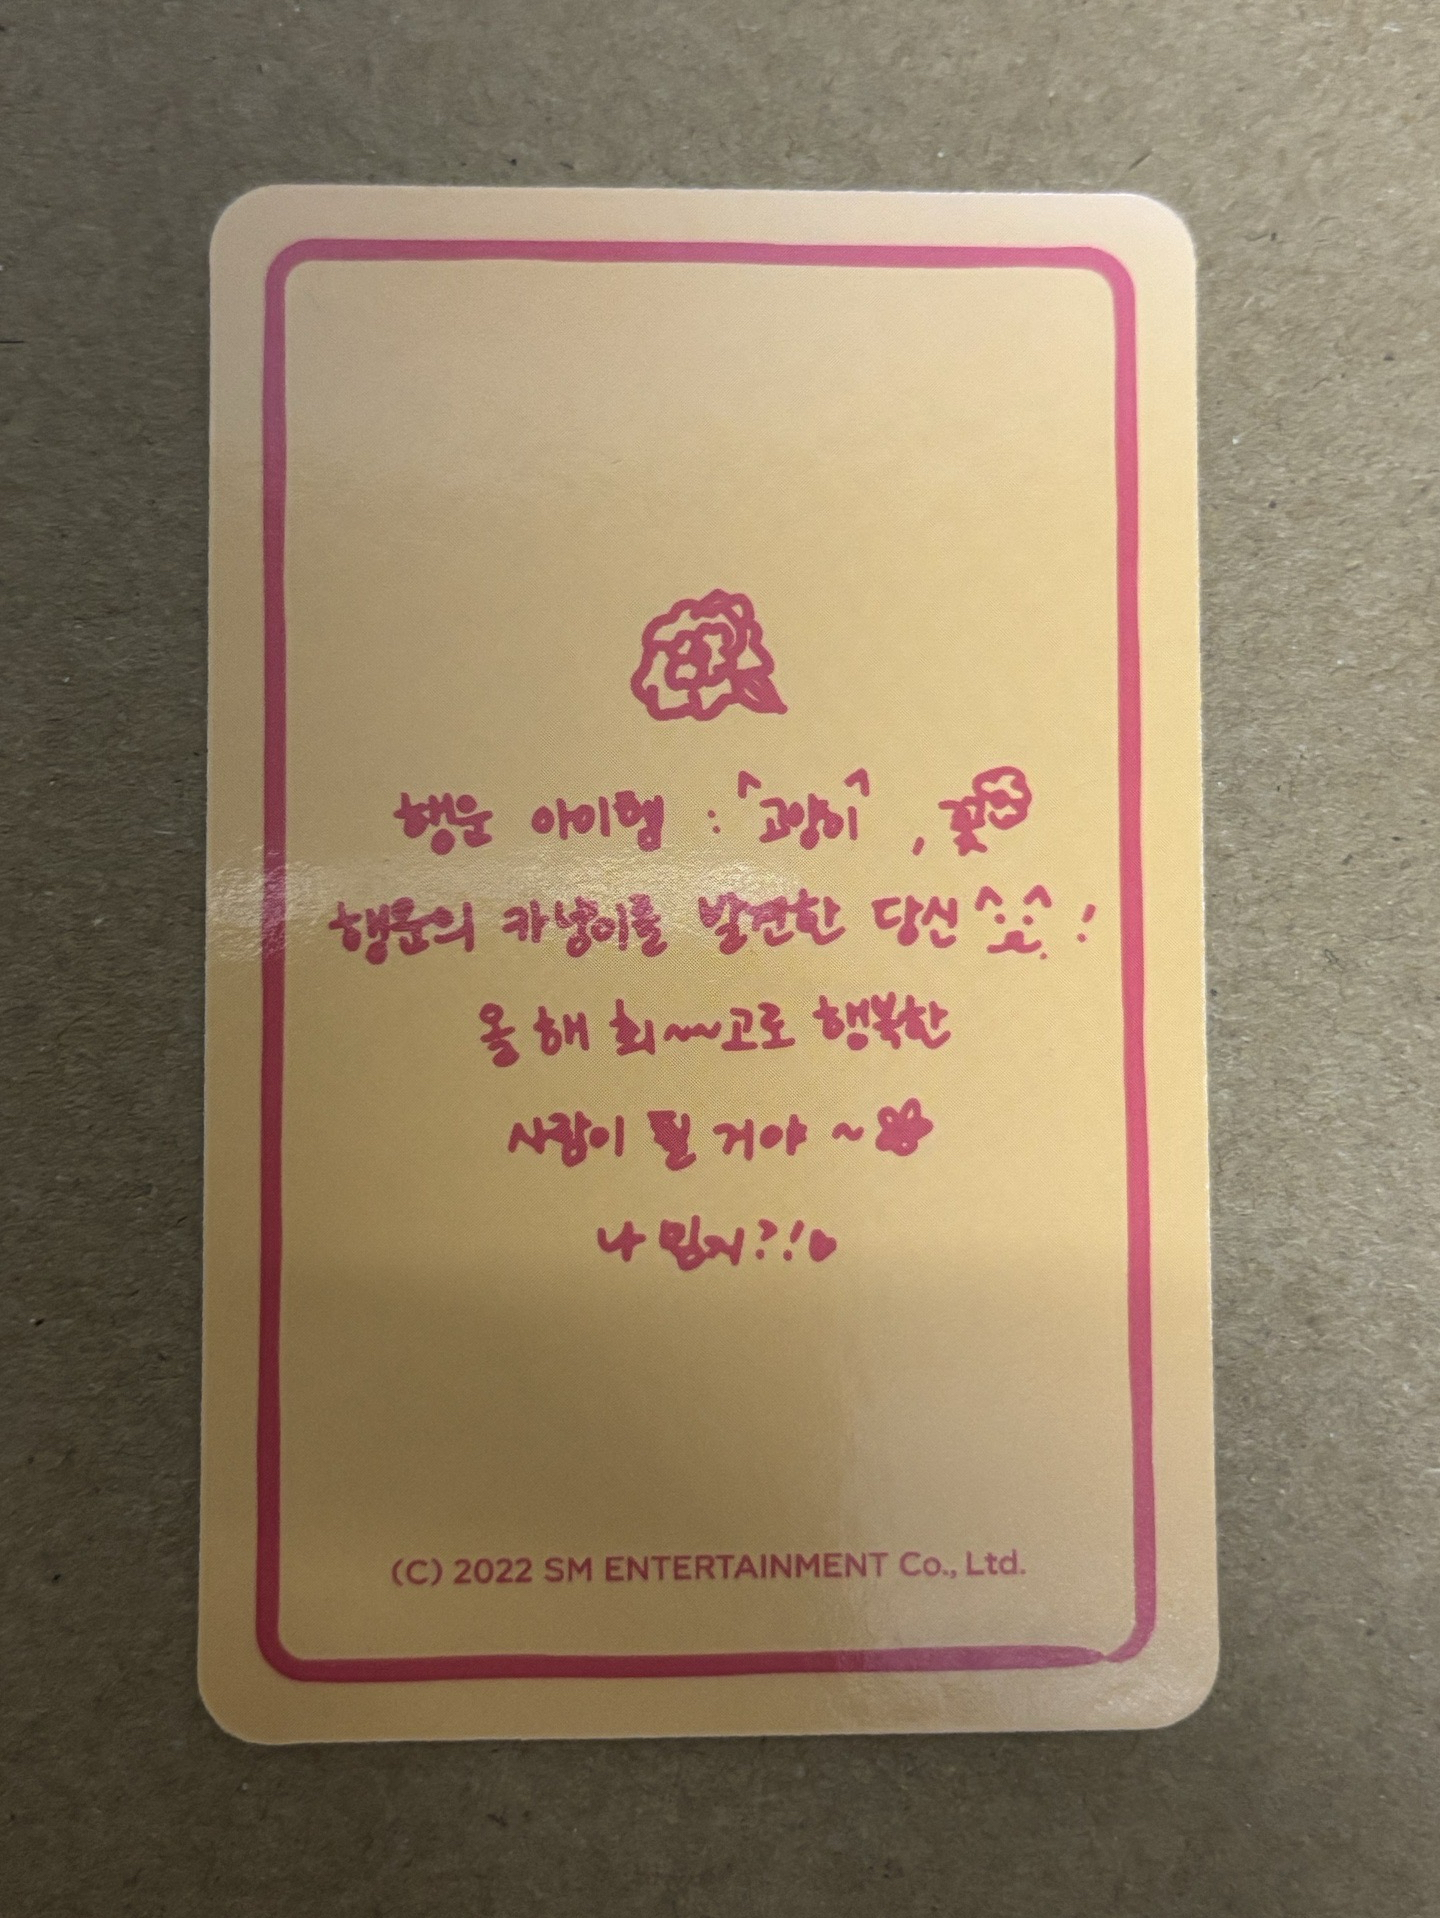 행운 아이템 : 고양이 , 꽃
행운의 카냥이를 발견한 당신 !
올해 최~~고로 행복한
사람이 될 거야 ~
나 믿지?!♥
(C) 2022 SM ENTERTAINMENT Co., Ltd.